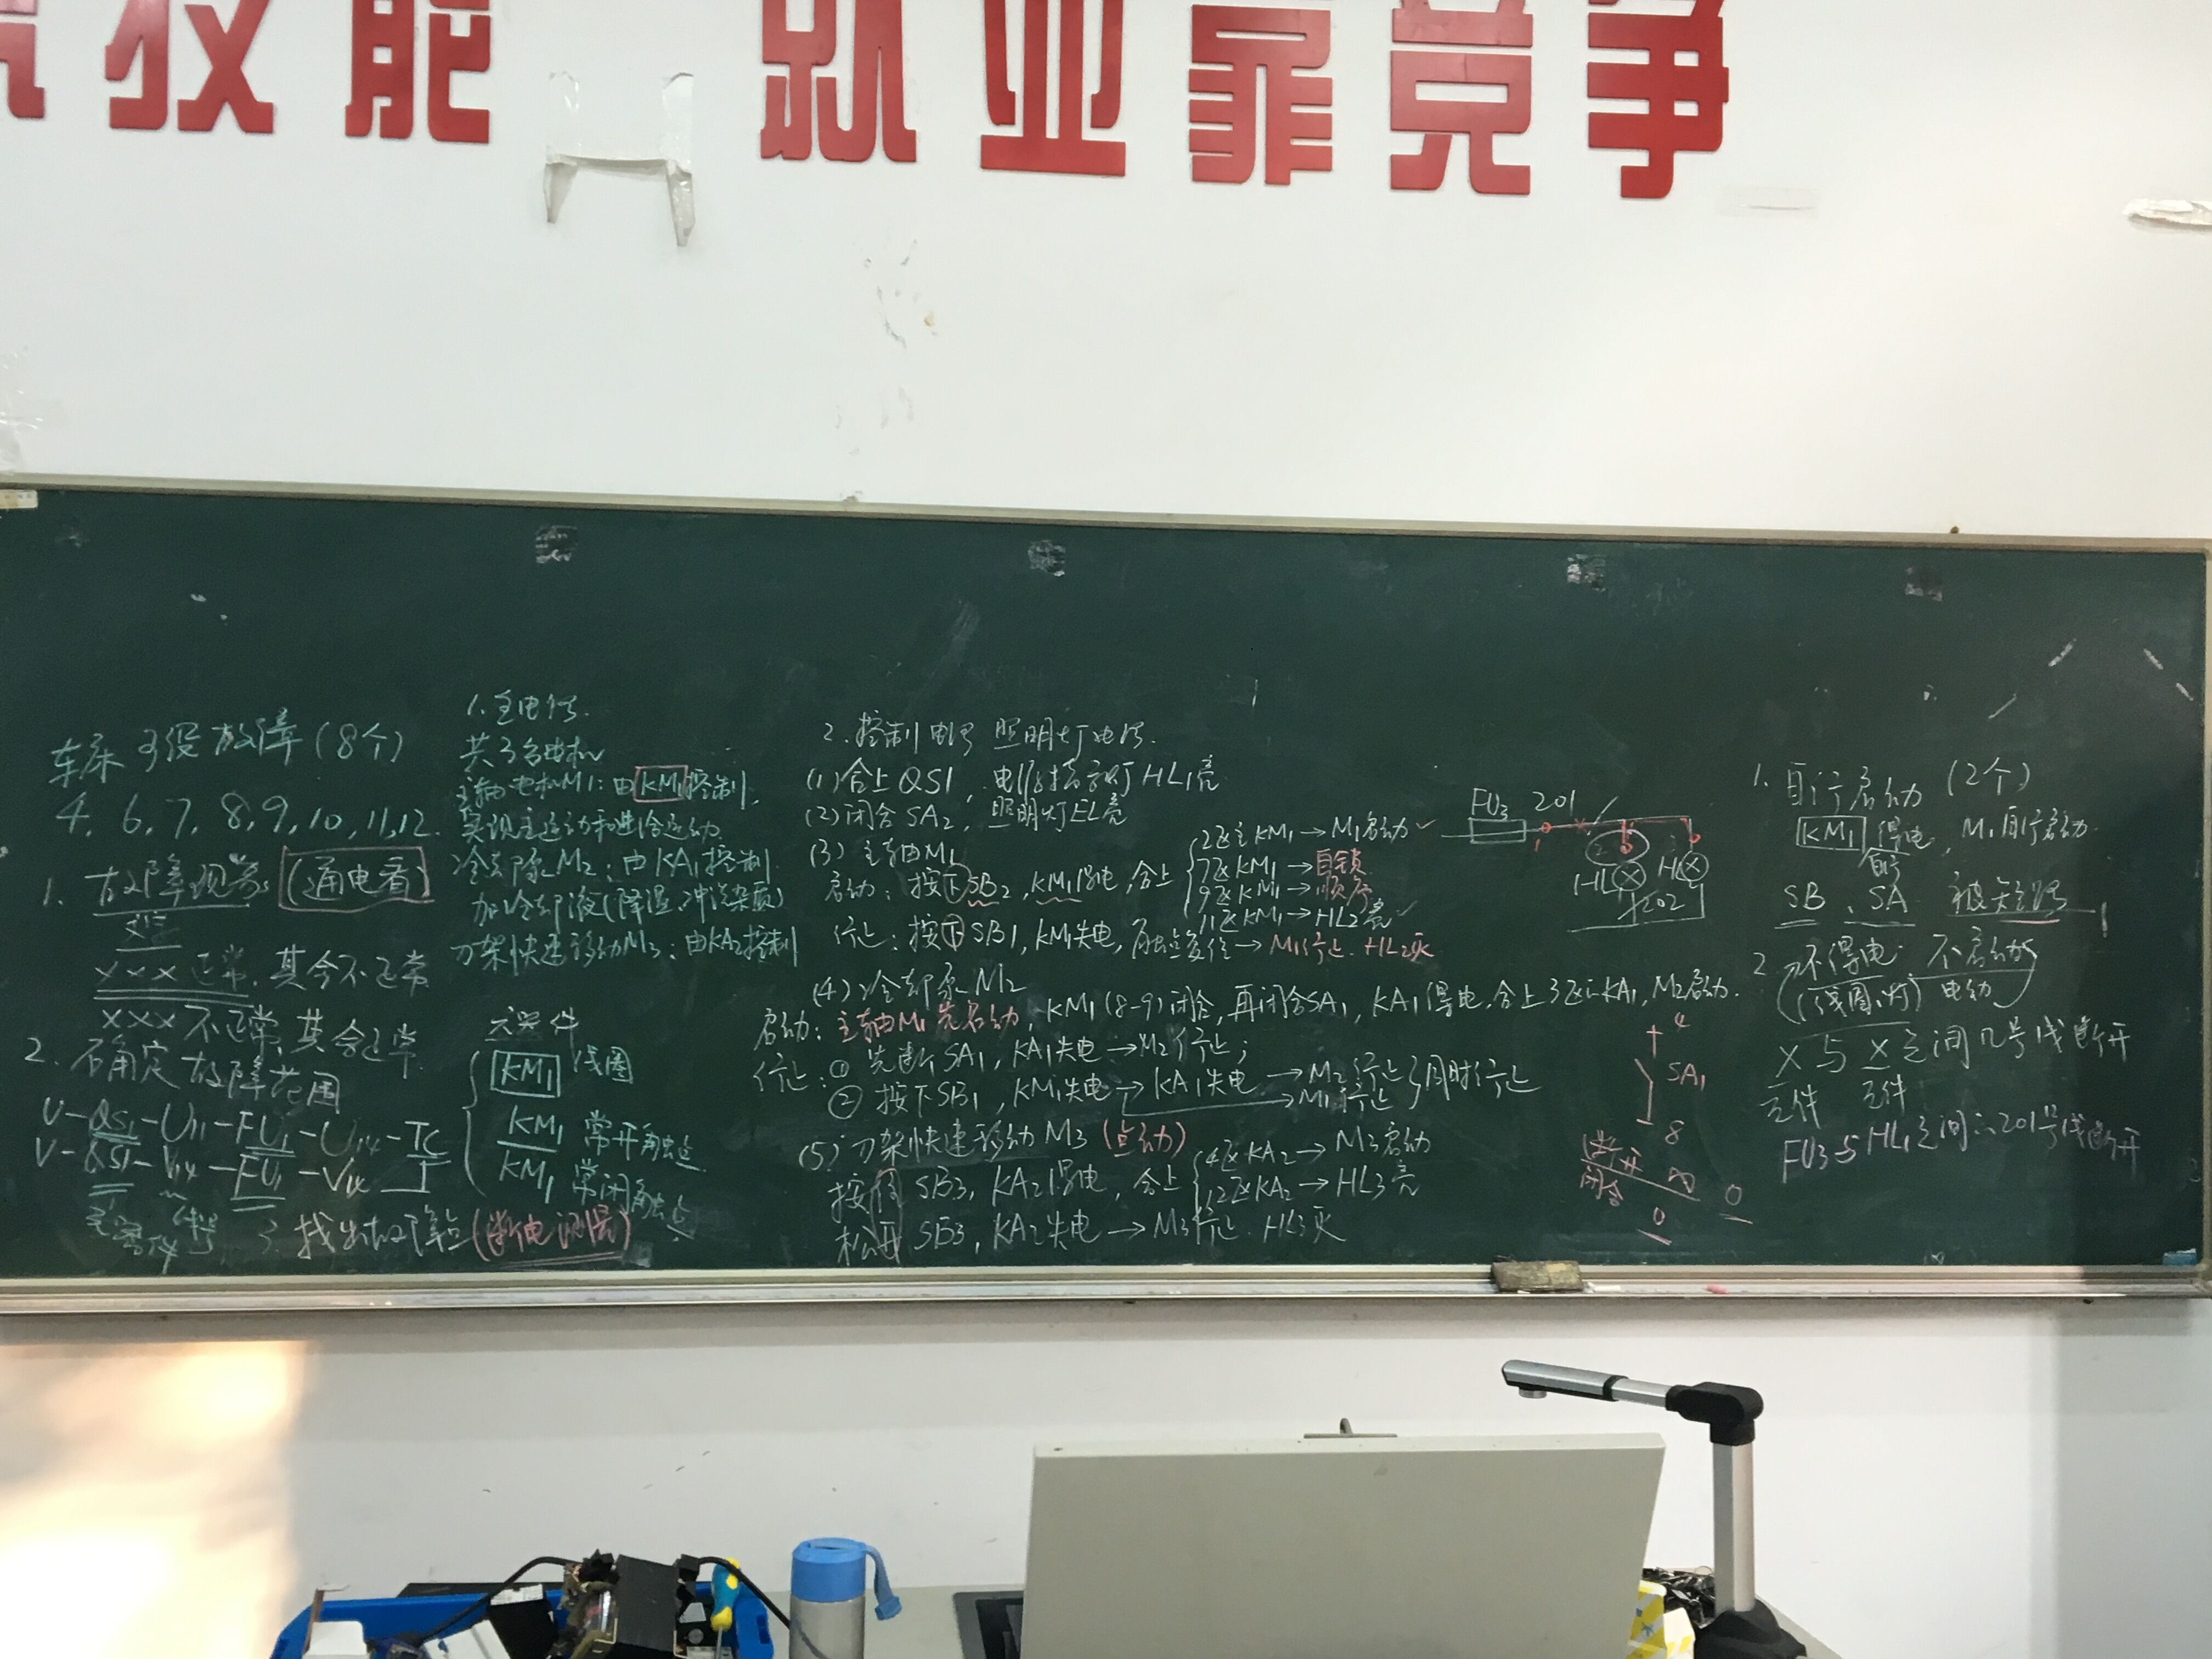 技能 就业靠竞争
车床 可设故障(8个)
4, 6, 7, 8, 9, 10, 11, 12.
1. 故障现象 (通电看)
××× 正常, 其余不正常
××× 不正常, 其余正常
2. 确定故障范围
U-QS1-U11-FU1-U14-TC
V-QS1-FU1-V14
3. 找出故障点(断电测量)
1. 主电路.
共3台电机
主轴电机M1: 由KM1控制,
实现主运动和进给运动
冷却泵M2: 由KA1控制
加冷却液(降温、冲洗杂质)
刀架快速移动M3: 由KA2控制
元器件
KM1 线圈
KM1 常开触点
KM1 常闭触点
2. 控制电路 照明灯电路.
(1) 合上QS1, 电源指示灯HL1亮
(2) 闭合SA2, 照明灯EL亮
(3) 主轴M1
启动: 按下SB2, KM1得电, 合上
2区主KM1→M1启动✓
7区KM1→自锁
9区KM1→顺序
11区KM1→HL2亮✓
停止: 按下SB1, KM1失电, 触点复位→M1停止. HL2灭
(4) 冷却泵M2
启动: 主轴M1先启动, KM1(8-9)闭合, 再闭合SA1, KA1得电, 合上3区KA1, M2启动.
停止: ① 先断SA1, KA1失电→M2停止;
② 按下SB1, KM1失电→KA1失电→M2停止}同时停止
→M1停止
(5) 刀架快速移动M3 (点动)
按下 SB3, KA2得电, 合上
4区KA2→M3启动
12区KA2→HL3亮
松开 SB3, KA2失电→M3停止. HL3灭
FU3 201
HL HL
202
4
SA1
8
断开 ∞
闭合 0 0
1. 自行启动 (2个)
KM1 得电, M1自行启动.
自行
SB、SA 被短路
2. 不得电. 不启动
(线圈、灯) 电动
X 与 X 之间几号线断开
元件 元件
FU3与HL1之间的201号线断开